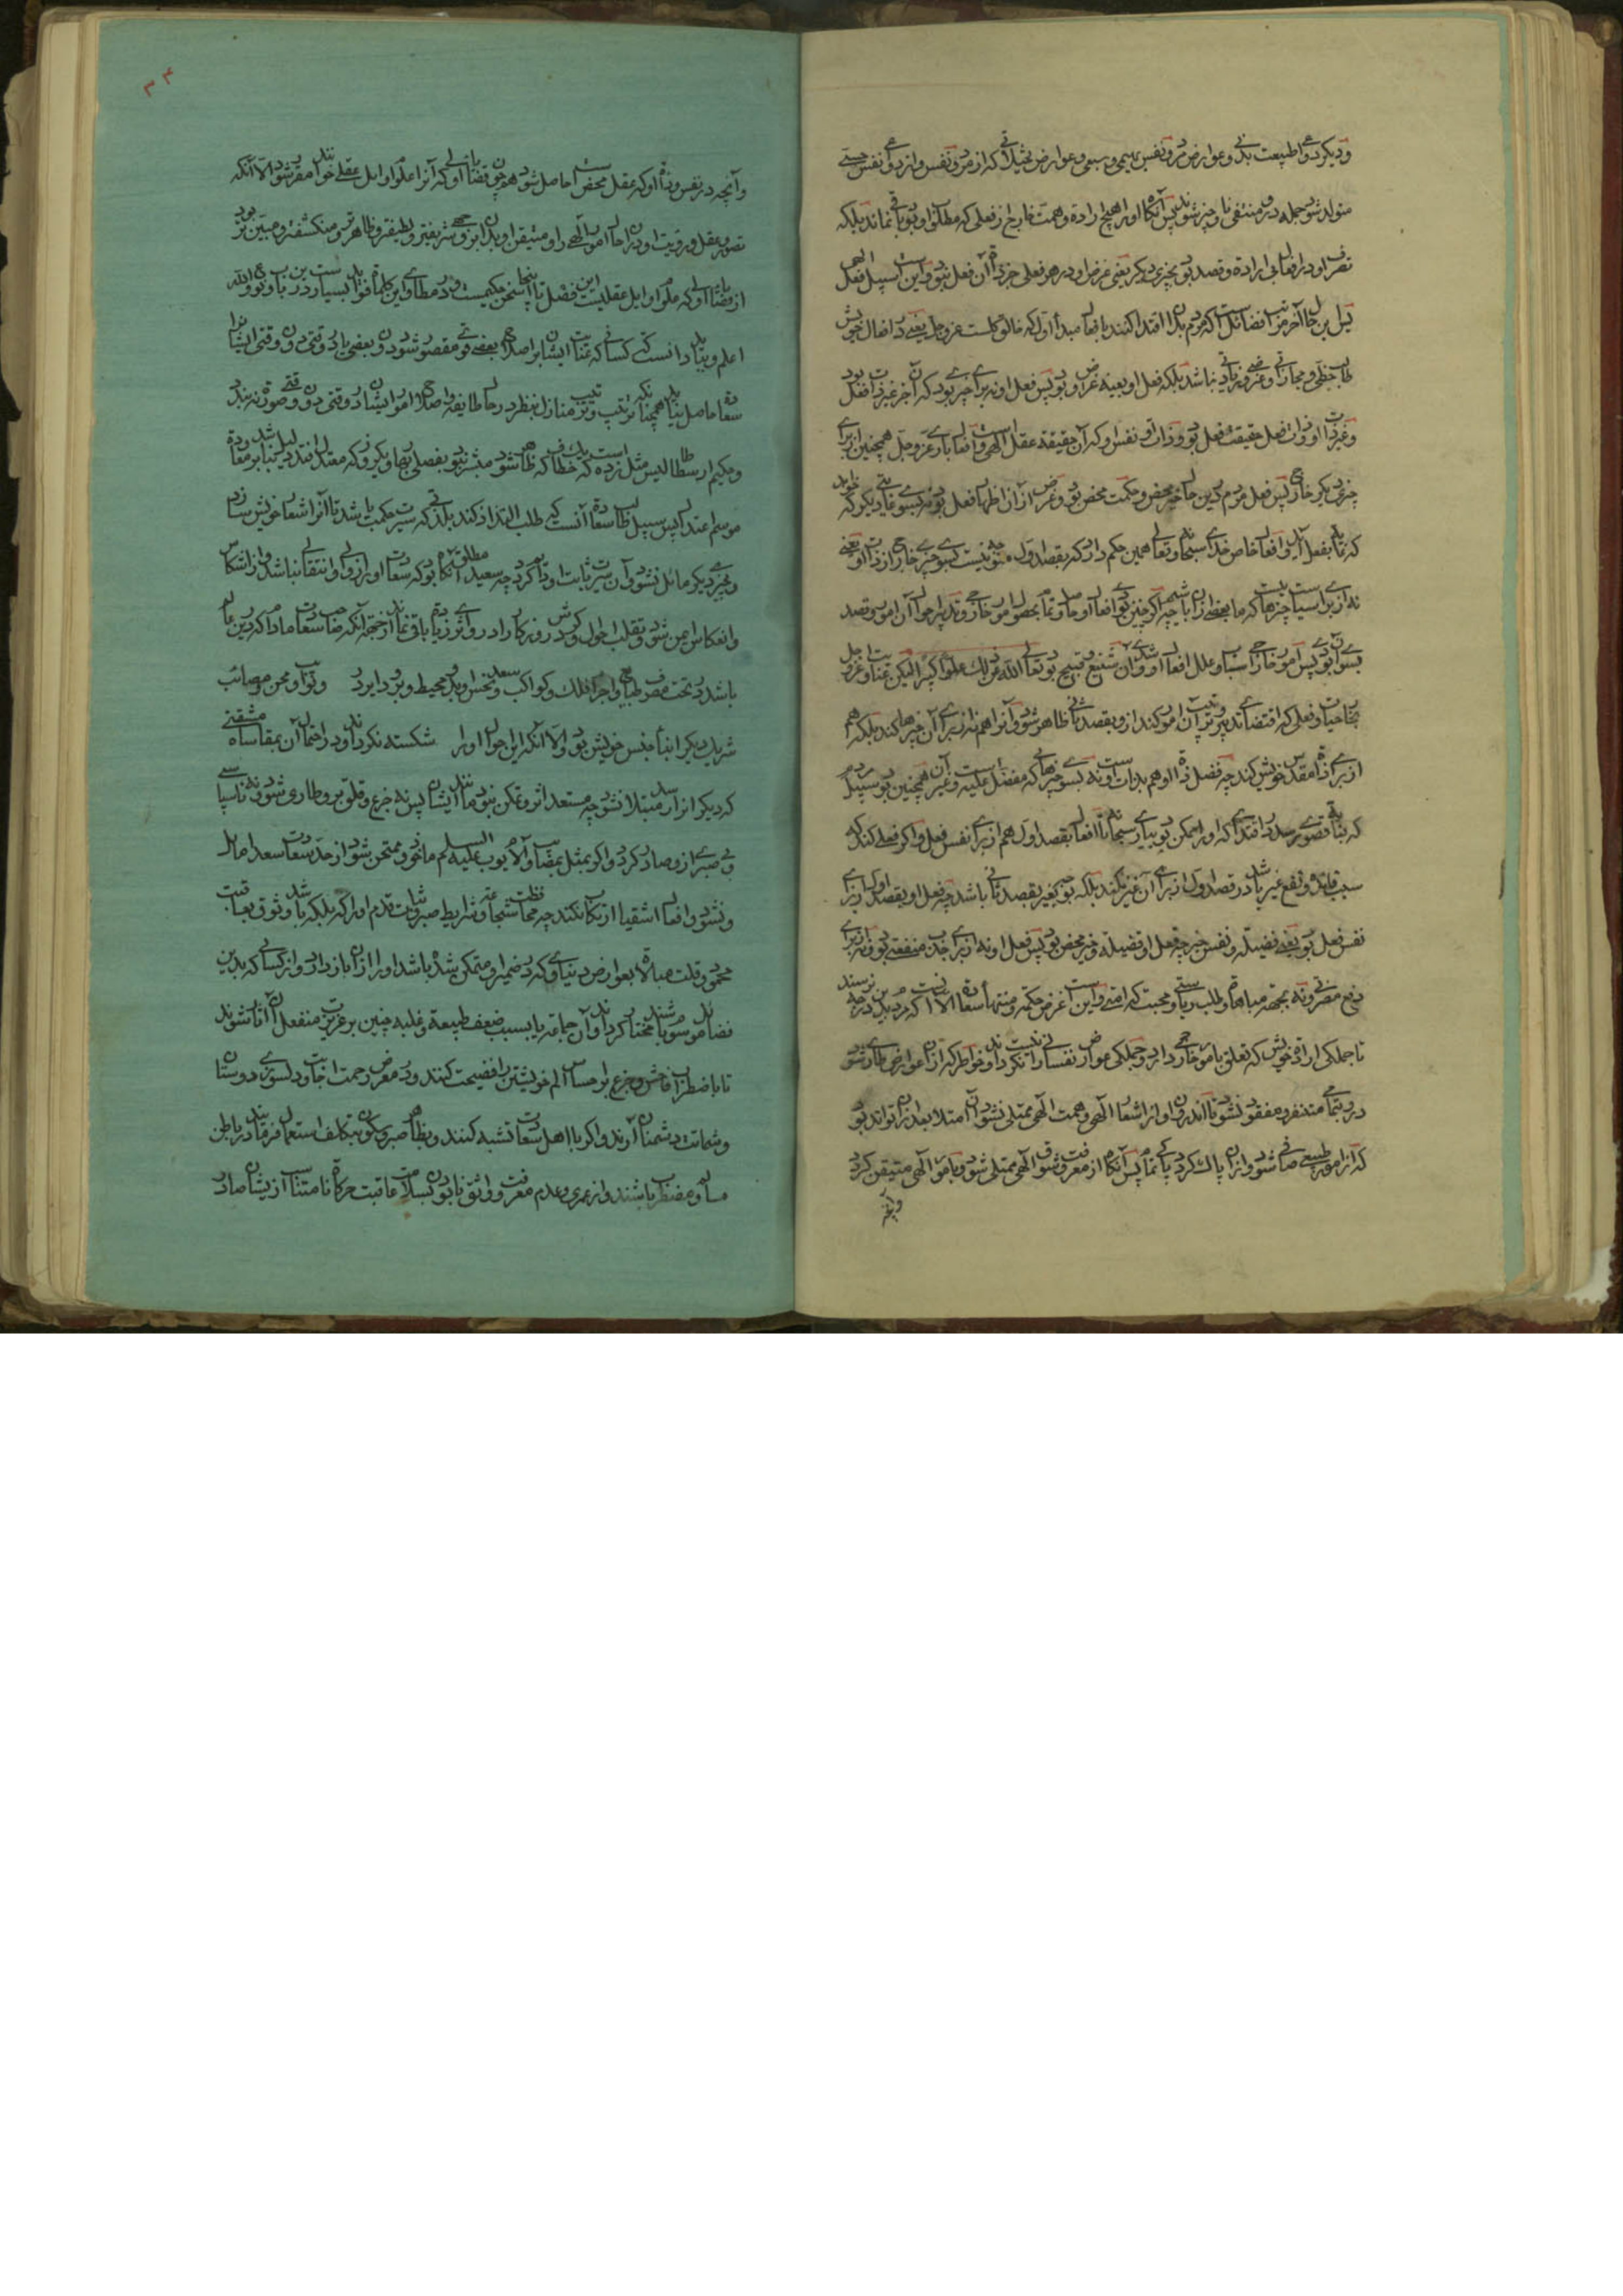 و دیگر دواعی طبیعت بدنی و عوارض مردو نفس بهیمی و سبعی و عوارض تخیلاتی که از مردو نفس و از دواعی نفس حسی
متولد شود جمله در و منتفی و ناچیز شوند پس آنگاه او را هیچ ارادة و همت خارج از فعلی که مطلوب او بود باقی نماند بلکه
تصرف او در افعال بی ارادة و قصد بود بچیزی دیگر یعنی غرض او در هر فعلی جز ذات آن فعل نبود و این است سبیل فعل الهی
پس این حال آخر مراتب فضائل است که مردم بدان اقتدا کنند بافعال مبدأ اول که خالق کل است عز و جل یعنی در افعال خویش
طالب حظی و مجازاتی و عوضی و زیادتی نباشد بلکه فعل او بعینه غرض او بود پس فعل او نه برای چیزی بود که آن چیز غیر ذات فعل بود
و غیر ذات او و ذات فعل حقیقت فعل بود و ذات او نفس او که آن حقیقة عقل الهی است و افعال باری عز و جل همچنین از برای
چیزی دیگر خارج پس فعل مردم درین حال خیر محض و حکمت محض بود و غرض از آن اظهار فعل بود نه بسوی غایتی دیگر که خواهد
که بدان فعل آید و افعال خاص خدای سبحانه و تعالی همین حکم دارد که بقصد اول متوجه نیست بسوی چیزی خارج از ذات او یعنی
نه از برای سیاست چیزهاست که ما بعضی از آن باشیم چه اگر چنین بودی افعال او حاصل و تمام بحصول امور خارجی و تدبیر احوال آن امور و قصد
بسوی آن بودی پس امور خارجی اسباب و علل افعال او شدی و آن شنیع و قبیح بود تعالی الله عن ذلک علوا کبیرا لیکن عنایت او عز و جل
بخارجیات و فعلی که اقتضای تدبیر و ترتیب آن امور کند از و بقصد ثانی ظاهر شود و آنرا هم نه از برای آن چیزها کند بلکه هم
از برای ذات مقدس خویش کند چه فضل ذات او هم بذات اوست نه بسوی چیزهائی که مفضل علیه است و غیر آن همچنین بود سبیل مردم
که بغایت قصوی رسد در اقتدائی که او را ممکن بود بباری سبحانه تا افعال بقصد اول هم از برای نفس فعل و اگر فعلی کند که
سبب فائده و نفع غیر باشد در قصد اول از برای آن غیر نکند بلکه توجه بغیر بقصد ثانی باشد چه فعل او بقصد اول از برای
نفس فعل بود یعنی نفس فضیلة و نفس خیر چه فعل او فضیلة و خیر محض بود پس فعل او نه از برای جذب منفعتی بود و نه از برای
دفع مضرتی و نه بجهة مباهاة و طلب ریاستی و محبت کرامتی و این است غرض حکمة و منتهای سعادة الا آنکه مردم بدین درجه نرسند
تا جملکی ارادة خویش که تعلق بامور خارجی دارد و جملکی عوارض نفسانی را نیست نگرداند و خواطر که از آن عوارض طاری شود
در و بتمامی متنفر و مفقود نشود تا اندرون او از اشعار الهی و همت الهی ممتلی نشود و آن امتلا بعد از آن تواند بود
که از امور طبیعی صافی شود و از آن پاک گردد پاکی تمام پس آنگاه از معرفت و شوق الهی ممتلی شود و بامور الهی متیقن گردد
و آنچه
۳۴
و آنچه در نفس و ذات او که عقل محض است حاصل شود همچون قضایای اولی که آنرا علوم اوایل عقلی خوانند مقرر شود الا آنکه
تصور عقل و رویت او در آن حال امور الهی را و متیقن او بدان بر وجهی شریفتر و لطیفتر و ظاهرتر و منکشفتر و مبین‌تر بود
از قضایای اولی که علوم اوایل عقلیست این فضل تا اینجا سخن حکیمست و در مطاوی این کلمات فواید بسیارست درین باب و الله
اعلم و بباید دانست که کسانی که عنایت ایشان بر اصلاح بعضی قوتی مقصور شود دون بعضی یا در وقتی دون وقتی ایشانرا
سعادة حاصل نیاید همچنانکه ترتیب و تدبیر منازل بنظر در حال طایفه و اصلاح امور ایشان در وقتی دون وقتی صورة نبندد
و حکیم ارسطاطالیس مثل زده است که یک خطاف که ظاهر شود مبشر نبود بفصل بهار و یکروز که معتدل افتد دلیل نباشد بر معاودة
موسم اعتدال پس سبیل طالب سعادة آنست که طلب التذاذ کند بلذتی که سیرت حکمت باشد تا آنرا شعار خویش سازد
و بچیزی دیگر مائل نشود و آن سیرت ثابت او دائم گردد چه سعید مطلق آنگاه بود که سعادت او را زوال و انتقال نباشد و از انتکاس
و انعکاس ایمن شود و تقلب احوال و گردش روزگار را در و اثری زیادة باقی نماند از جهة آنکه صاحب سعادت مادام که درین عالم
باشد در تحت تصرف طبایع و اجرام فلک و کواکب سعد و نحس او بدو محیط و برو دایر بود و نوایب و محن و مصائب
شریک دیگر ابناء جنس خویش بود الا آنکه این احوال او را شکسته نگرداند و در احتمال آن بمقاسات مشقتی
که دیگرانرا رسد مبتلا نشود چه مستعد اثر و تمکن نبود مانند ایشان پس نه جزع و قلق برو طاری شود و نه ناسپاسی
و بی صبری ازو صادر گردد و اگر بمثل بمصائب و آلام ایوب علیه السلم ماخوذ و ممتحن شود از حد سعادت سعدا مایل
نشود و افعال اشقیا ارتکاب نکند چه محافظت شجاعة و شرایط صبر و ثبات قدم او را که ملکه باشد و وثوق بعاقبت
محمود و قلت مبالاة بعوارض دنیاوی که در ضمیر او متمکن شده باشد او را از آن باز دارد و از کسانی که بدین
فضائل موسوم باشند مختار گرداند و آن جماعة یا بسبب ضعف طبیعة و غلبه جبن بر غریزت منفعل آن آثار شوند
تا باضطراب فاحش و جزع و احساس الم خویشتن را فضیحت کنند و در معرض رحمت اجانب و دلسوزی دوستان
و شماتت دشمنان آرند و اگر باهل سعادت تشبه کنند و بظاهر صبر و سکون بتکلف استعمال فرمایند در باطن
متألم و مضطرب باشند و از غمری و عدم معرفت و واثق نابودن بسلامت عاقبت حرکات نامتناسب ازیشان صادر